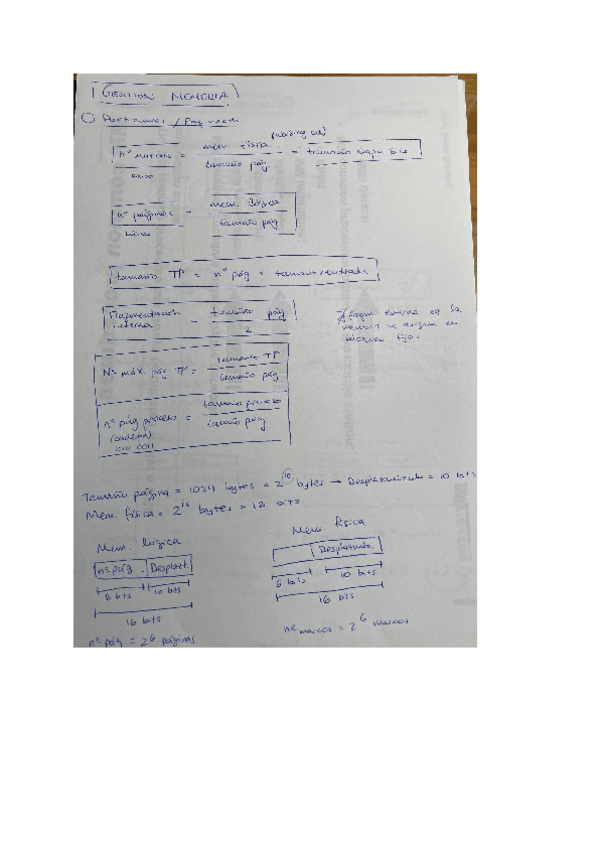 GESTION MEMORIA
Particiones / Paginación
mem. física
nº marcos = = tamaño mapa bits
tamaño pág
mem. lógica
nº páginas =
tamaño pág
tamaño TP = nº pág × tamaño entrada
Fragmentación interna = tamaño pág
2
memoria se asigna en
bloques fijos
Nº máx. pág TP = tamaño TP
tamaño pág
nº pág proceso = tamaño proceso
tamaño pág
(cadena)
Tamaño página = 1024 bytes = 2^10 bytes → Desplazamiento = 10 bits
Mem. física = 2^16 bytes = bits.
Mem. lógica
nº pág Desplaz.
6 bits 10 bits
16 bits
nº pág = 2^6 páginas
Mem. física
Desplazamto.
6 bits 10 bits
16 bits
nº marcos = 2^6 marcos